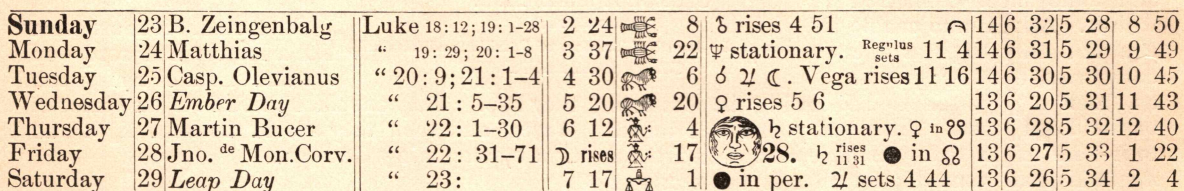 Sunday 23 B. Zeingenbalg Luke 18:12; 19: 1-28 2 24 8 ♄ rises 4 51 14 6 32 5 28 8 50
Monday 24 Matthias “ 19: 29; 20: 1-8 3 37 22 ♆ stationary. Regulus sets 11 4 14 6 31 5 29 9 49
Tuesday 25 Casp. Olevianus “ 20: 9; 21: 1-4 4 30 6 ☌ ♃ ☾. Vega rises 11 16 14 6 30 5 30 10 45
Wednesday 26 Ember Day “ 21: 5-35 5 20 20 ♀ rises 5 6 13 6 20 5 31 11 43
Thursday 27 Martin Bucer “ 22: 1-30 6 12 4 ♄ stationary. ♀ in ☋ 13 6 28 5 32 12 40
Friday 28 Jno. de Mon.Corv. “ 22: 31-71 ☽ rises 17 28. ♄ rises 11 31 ● in ☊ 13 6 27 5 33 1 22
Saturday 29 Leap Day “ 23: 7 17 1 ● in per. ♃ sets 4 44 13 6 26 5 34 2 4